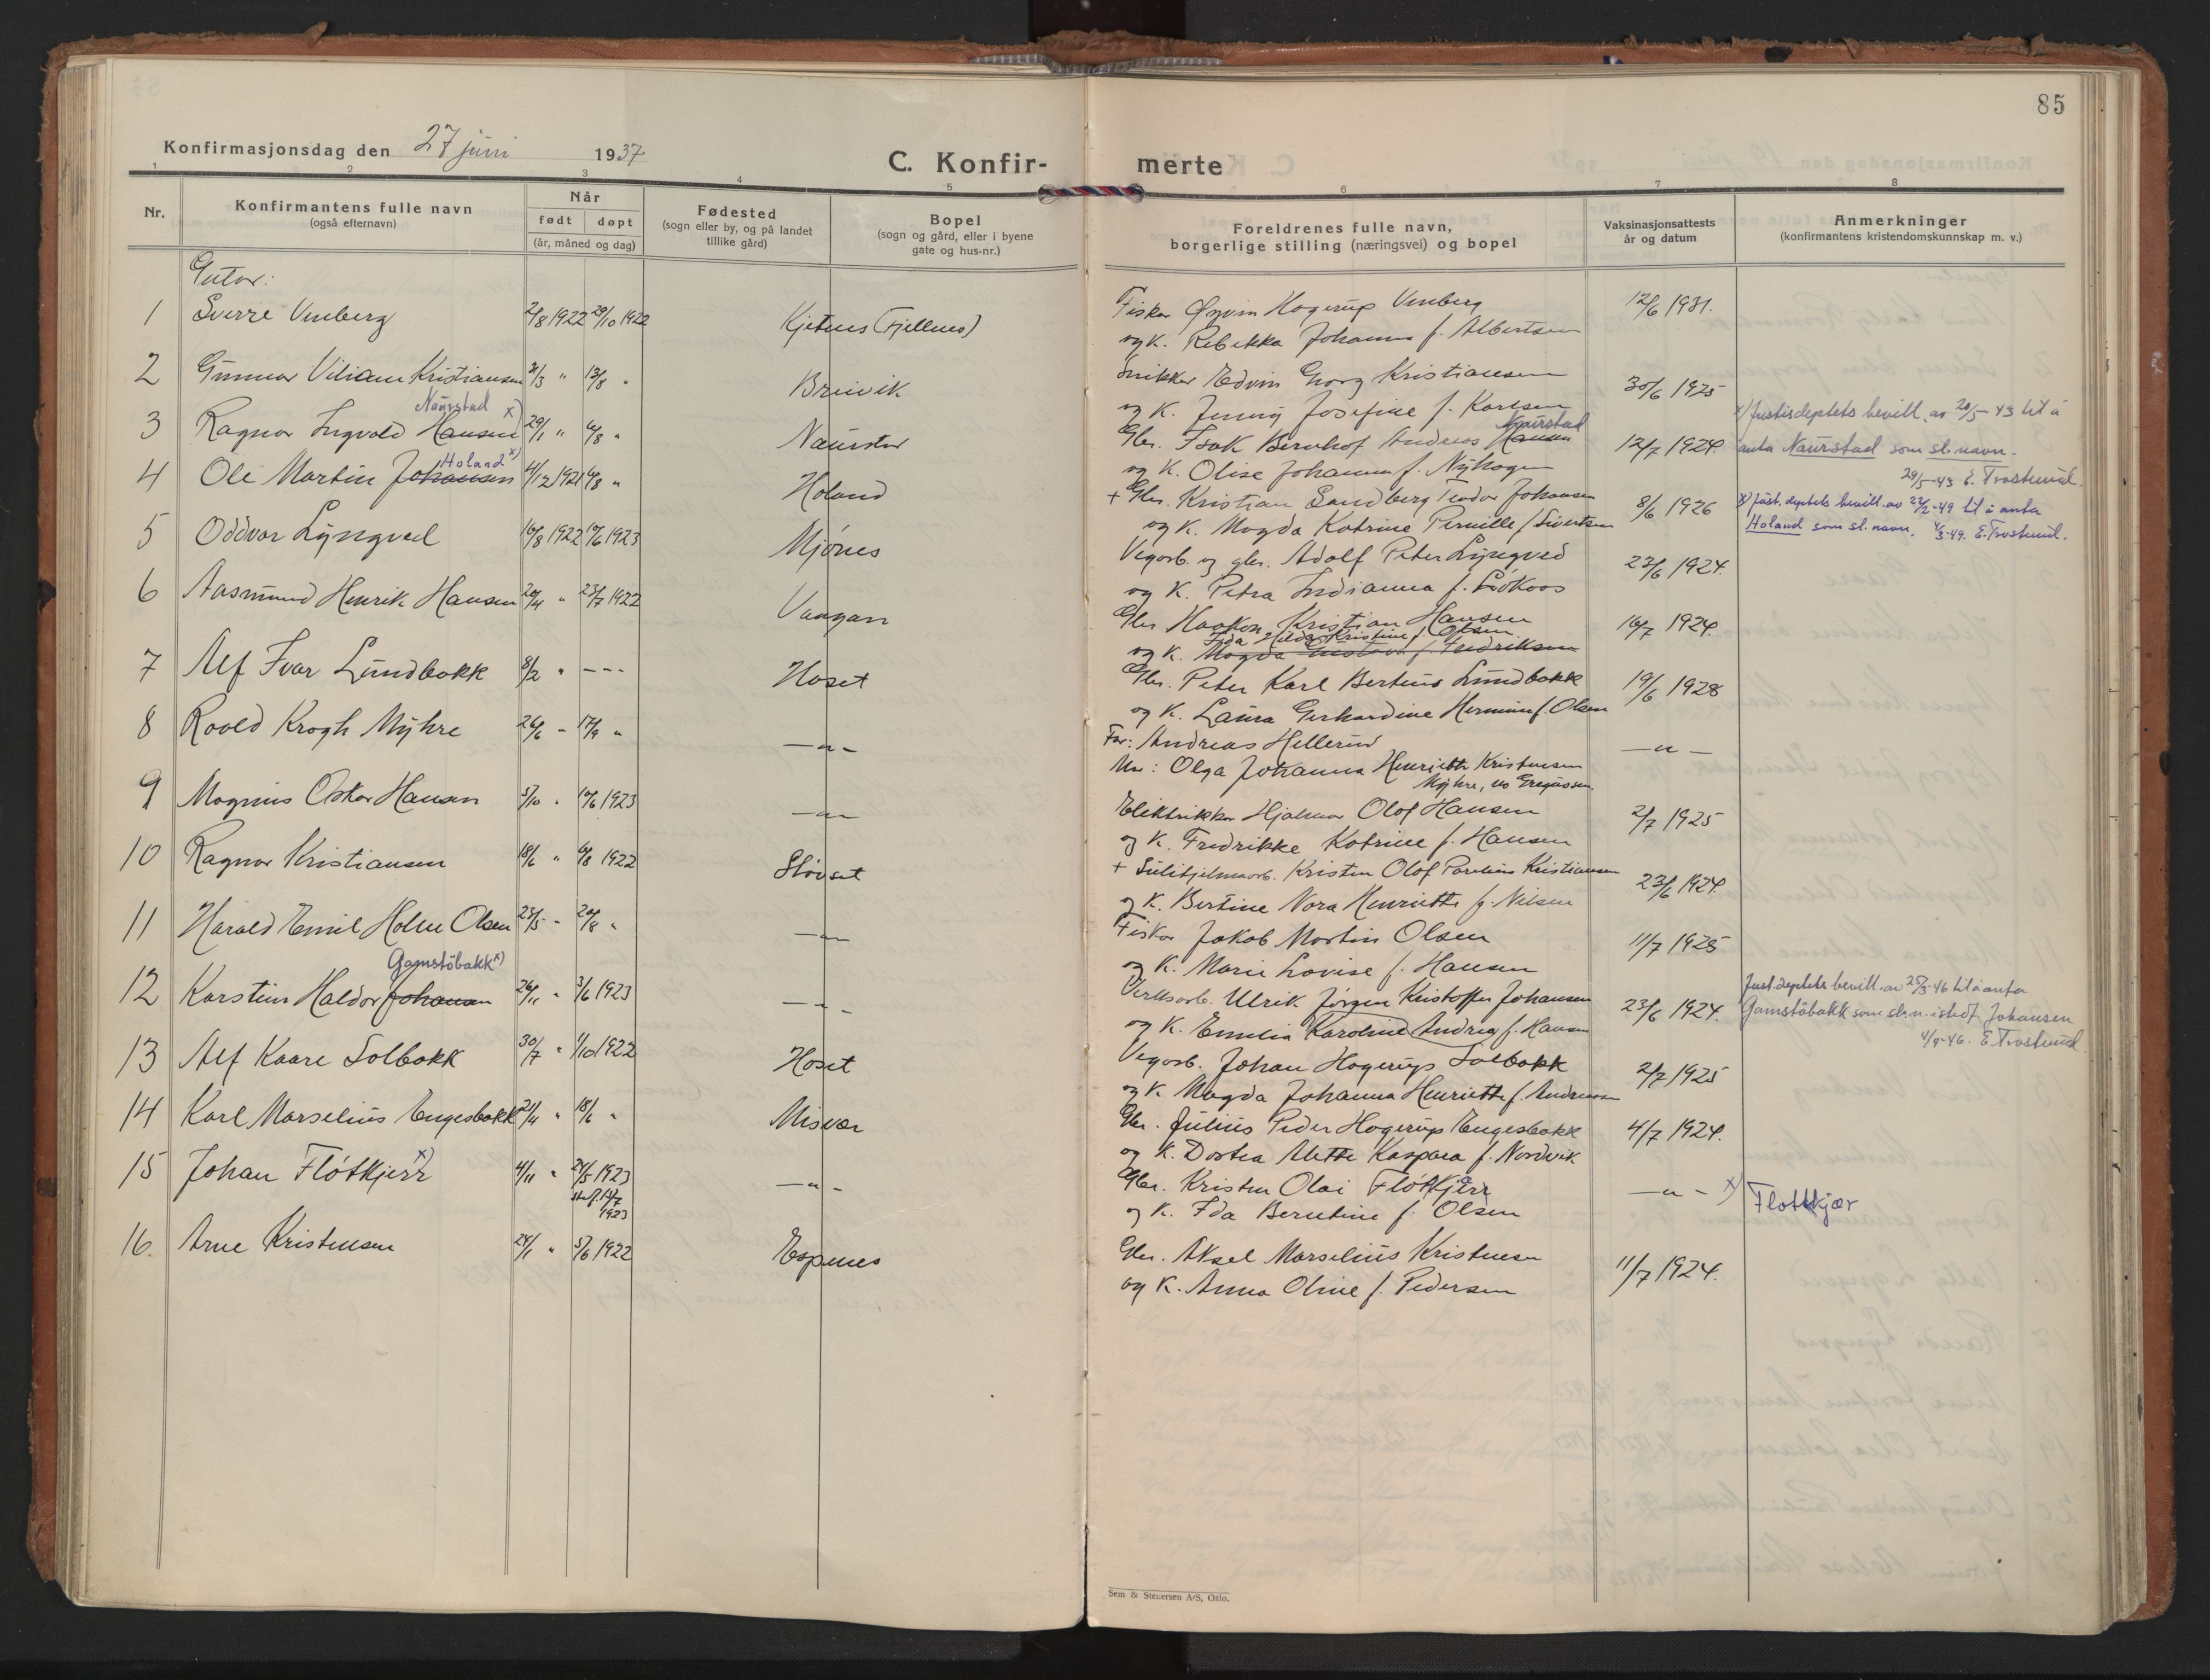 85
Konfirmasjonsdag den 27 juni 1937
C. Konfir-
merte
1 2 3 4 5 6 7 8
Nr.
Konfirmantens fulle navn
(også efternavn)
Når
født døpt
(år, måned og dag)
Fødested
(sogn eller by, og på landet
tillike gård)
Bopel
(sogn og gård, eller i byene
gate og hus-nr.)
Foreldrenes fulle navn,
borgerlige stilling (næringsvei) og bopel
Vaksinasjonsattests
år og datum
Anmerkninger
(konfirmantens kristendomskunnskap m. v.)
Gutar:
1 Sverre Vinberg 2/8 1922 29/10 1922 Kjetnes (Fjellnes) Fisker Øyvin Hagerup Vinberg 12/6 1931.
og K. Rebekka Johanna f. Albertsen
2 Gunnar Viliam Kristiansen 31/3 " 13/8 " Breivik Snikker Edvin Georg Kristiansen 30/6 1925
og K. Jenny Josefine f. Karlsen
Naurstad x)
3 Ragnar Ingvald Hansen 29/1 " 6/8 " Naurstad Gbr. Isak Bernhof Andreas Hansen Naurstad 12/7 1924. x) Justisdeptets bevill. av 20/5-43 til å
anta Naurstad som sl.navn.
og K. Olise Johanna f. Nyhagen 29/5-43 E. Trostrud.
Holand x)
4 Ole Martin Johansen 4/12 1921 6/8 " Holand + Gbr. Kristian Sandberg Teodor Johansen 8/6 1926 x) Just.deptets bevill. av 22/2-49 til å anta
og K. Magda Katrine Pernille f. Sivertsen Holand som sl.navn. 4/3-49. E. Trostrud.
5 Oddvar Lyngved 16/8 1922 10/6 1923 Mjønes Vegarb. og gbr. Adolf Peter Lyngved 23/6 1924.
og K. Petra Indianna f.
6 Aasmund Henrik Hansen 20/4 " 23/7 1922 Vaagan Gbr. Haakon Kristian Hansen 16/7 1924.
Ida Hilda Kristine f. Olsen
og K. Magda Gustava f. Fredriksen
7 Alf Ivar Lundbakk 8/2 " - - - Høset Gbr. Peter Karl Bertius Lundbakk 19/6 1928
og K. Laura Gerhardine Hermine f. Olsen
8 Roald Krogh Myhre 26/6 - 17/9 " — " — Far: Andreas Hellerud — " —
Mor: Olga Johanna Henriette Kristensen
Myhre, no Gregussen.
9 Magnus Oskar Hansen 5/10 . 10/6 1923 — " — Elektrikker Hjalmar Olaf Hansen 2/7 1925
og K. Fredrikke Katrine f. Hansen
10 Ragnar Kristiansen 18/6 " 6/8 1922 Støvset + Sulitjelmaarb. Kristen Olaf Parelius Kristiansen 23/6 1924.
og K. Bertine Nora Henriette f. Nilsen
11 Harald Emil Holm Olsen 23/5 - 20/8 " — " — Fisker Jakob Martin Olsen 11/7 1925
og K. Marie Lovise f. Hansen
Gamstøbakk x)
12 Karstein Haldor Johansen 26/11 " 3/6 1923 — " — Verksarb. Ulrik Jørgen Kristoffer Johansen 23/6 1924. Just.deptets bevill. av 25/3-46 til å anta
Gamstøbakk som sl.n. istedf. Johansen
og K. Emelia Karoline Andrea f. Hansen 4/4-46. E. Trostrud.
13 Alf Kaare Solbakk 30/7 " 1/10 1922 Høset Vegarb. Johan Hagerup Solbakk 2/7 1925
og K. Magda Johanna Henriette f. Andreassen
14 Karl Marselius Engesbakk 21/4 " 18/6 " Misvær Gbr. Julius Peder Hagerup Engesbakk 4/7 1924.
og K. Dortea Alette Kaspara f. Nordvik
15 Johan Fløtkjerr x) 4/11 " 24/5 1923 — " — Gbr. Kristen Olai Fløtkjerr — " — x) Flottkjær
stf. 14/7
1923
og K. Ida Berntine f. Olsen
16. Arne Kristensen 24/1 " 5/6 1922 Espenes Gbr. Aksel Marselius Kristensen 11/7 1924.
og K. Anna Oline f. Pedersen
Sem & Stenersen A/S, Oslo.